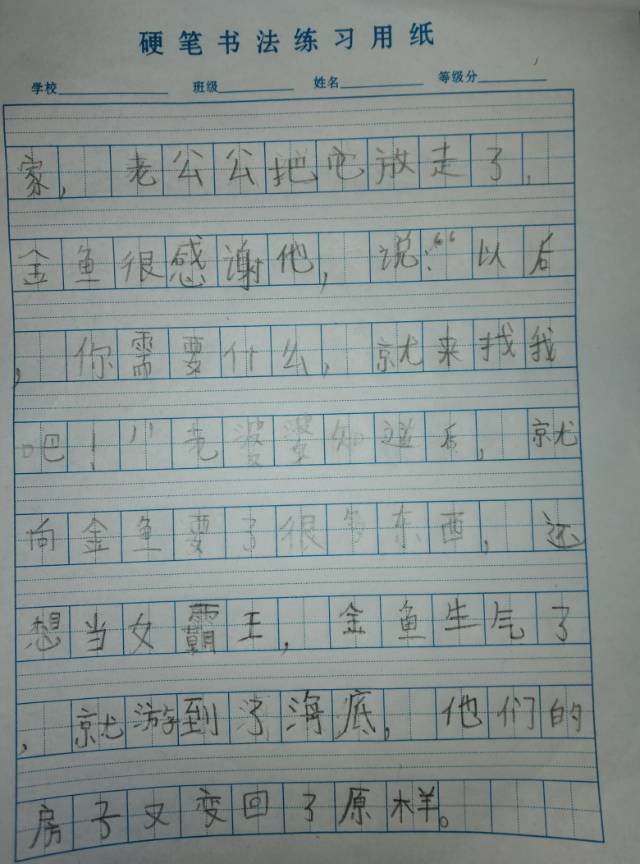 硬笔书法练习用纸
学校 班级 姓名 等级分
家，老公公把它放走了，
金鱼很感谢他，说：“以后
，你需要什么，就来找我
吧！”老婆婆知道后，就
向金鱼要了很多东西，还
想当女霸王，金鱼生气了
，就游到了海底，他们的
房子又变回了原样。